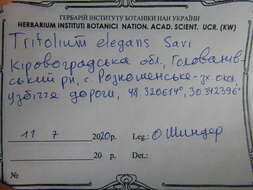 ГЕРБАРІЙ ІНСТИТУТУ БОТАНІКИ НАН УКРАЇНИ
HERBARIUM INSTITUTI BOTANICI NATION. ACAD. SCIENT. UCR. (KW)
Trifolium elegans Savi
Кіровоградська обл., Голованів-
ський рн, с. Розкошенське-зх ока.
узбіччя дороги, 48.320614°, 30.342396°
11 7 2020 р. Leg.: О Шиндер
20 р. Det.:
№